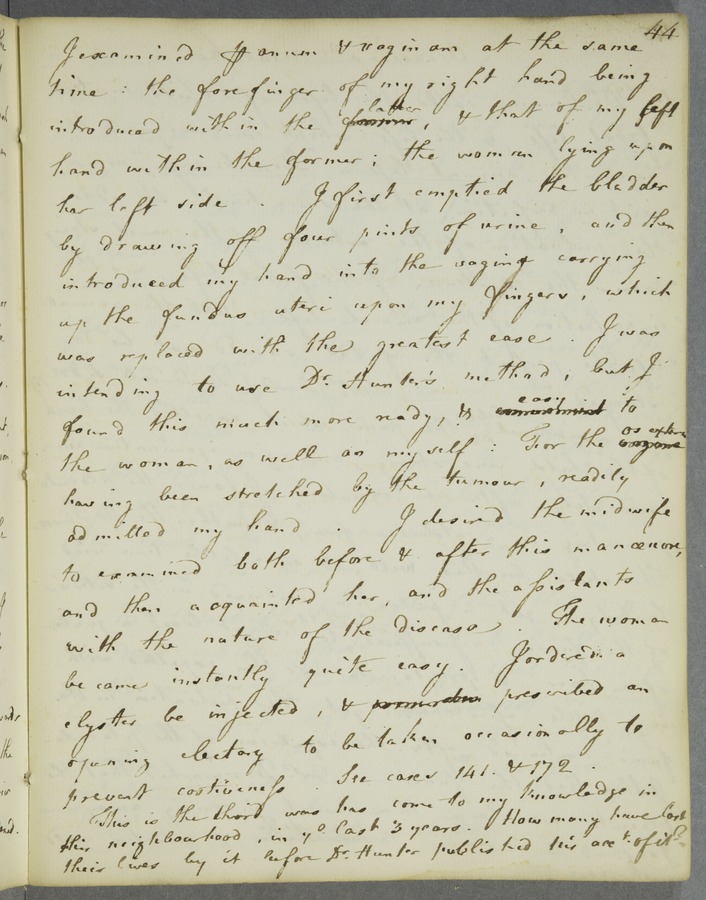 44
I examined pr anum & vaginam at the same
time : the forefinger of my right hand being
introduced within the former latter, & that of my left
hand within the former ; the woman lying upon
her left side . I first emptied the bladder
by drawing off four pints of urine , and then
introduced my hand into the vagina carrying
up the fundus uteri upon my fingers , which
was replaced with the greatest ease . I was
intending to use Dr. Hunter's method , but I
found this much more ready, & easy to
the woman, as well as myself : For the os extern
having been stretched by the tumour , readily
admitted my hand . I desired the midwife
to examined both before & after this manœuvre,
and then acquainted her, and the assistants
with the nature of the disease . The woman
became instantly quite easy . I ordered a
clyster be injected , & prescribed an
opening electary to be taken occasionally to
prevent costiveness . See cases 141. & 172 .
This is the third was has come to my knowledge in
this neighbourhood , in ye. last 3 years . How many have lost
their lives by it before Dr. Hunter published his acct. of it?